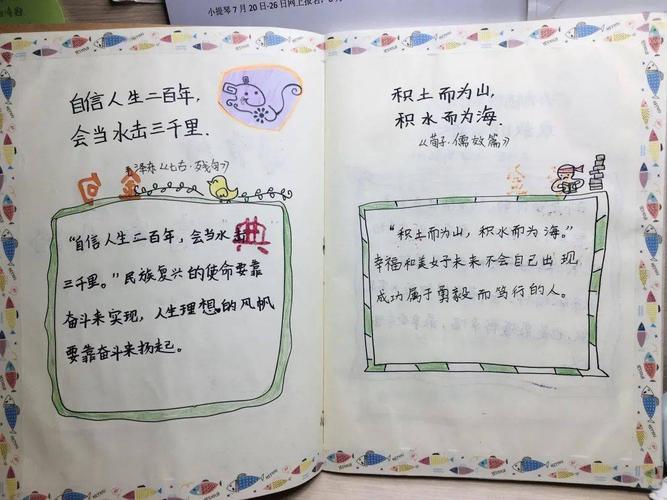 小提琴7月20日-26日网上报名,
自信人生二百年,
会当水击三千里.
泽东《七古·残句》
金
句
典
"自信人生二百年,会当水击
三千里。"民族复兴的使命要靠
奋斗来实现,人生理想的风帆
要靠奋斗来扬起。
积土而为山,
积水而为海.
《荀子·儒效篇》
"积土而为山,积水而为海。"
幸福和美好未来不会自己出现,
成功属于勇毅而笃行的人。